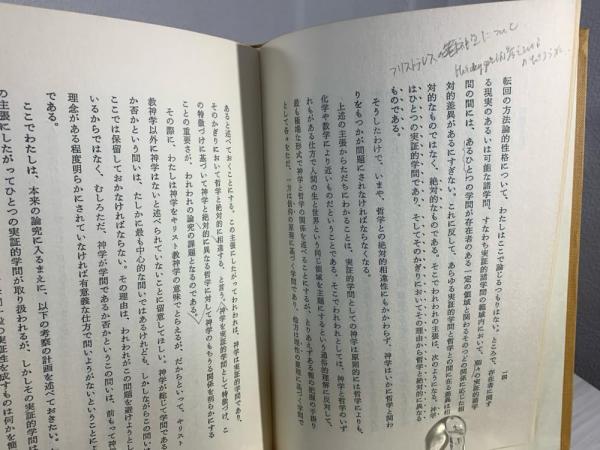 アリストテレスの
について
転回の方法論的性格について、わたしはここで論じるつもりはない。ところで、存在者に関す
る現実のあるいは可能な諸学問、すなわち実証的諸学問の領域内において、個々の実証的諸学
問の間には、あるひとつの学問が存在者のある一定の領域と関わるそのつどの関係に応じた相
対的差異があるにすぎない。これに反して、あらゆる実証的学問と哲学との間に在る差異は相
対的なものではなく、絶対的なものである。そこでわれわれの主張は、次のようになる。神学
はひとつの実証的学問であり、そしてそのかぎりにおいてその理由から哲学と絶対的に異なる
ものである。
そうしたわけで、いまや、哲学との絶対的相違性にもかかわらず、神学はいかに哲学と関わ
りをもつかが問題にされなければならなくなる。
上述の主張からただちにわかることは、実証的学問としての神学は原則的には哲学よりも、
化学や数学により近いものだということである。そこでわれわれとしては、神学と哲学のいず
れもがある仕方で人間の生と世界という同じ領域を主題にするという通俗的理解に反対して、
最も極端な形式で神学と哲学の関係を述べることにするが、とりあえずある種の把握の手掛り
として各々をただ、一方は信仰の原理に基づく学問であり、他方は理性の原理に基づく学問で
あると述べておくことにする。この主張にしたがってわれわれは、神学は実証的学問であり、
そのかぎりにおいて哲学と絶対的に相違する、と言う。神学を実証的学問として特徴づけ、こ
の特徴づけに基づいて神学と絶対的に異なる哲学に対して神学のもちうる関係を明らかにする
ことの重要さが、われわれの論究の課題となるのである。
その際に、わたしは神学をキリスト教神学の意味でとらえるが、だからといって、キリスト
教神学以外に神学はないと述べられていないことに留意してほしい。神学が総じて学問である
か否かという問いは、たしかに最も中心的な問いではあるけれども、しかしながらこの問いは
ここでは保留しておかなければならない。その理由は、われわれがこの問題を避けようとして
いるからではなく、むしろただ、神学が学問であるか否かというこの問いは、前もって神学の
理念がある程度明らかにされていなければ有意義な仕方で問いようがないということによるの
である。
ここでわたしは、本来の論究に入るまえに、以下の考察の計画を述べておきたい。
の主張にしたがってひとつの実証的学問が取り扱われるが、しかしその実証的学問は